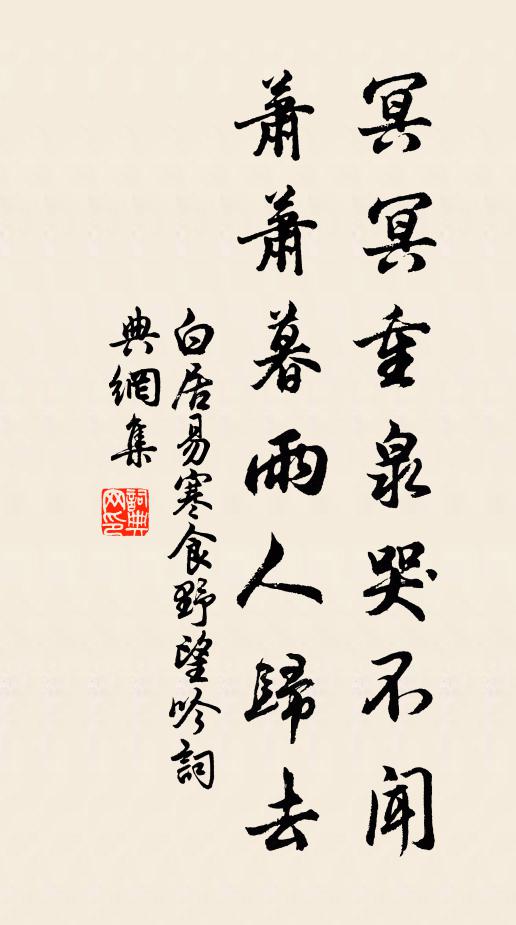 冥冥重泉哭不聞
蕭蕭暮雨人歸去
白居易寒食野望吟詞
典網集
詞典
网印